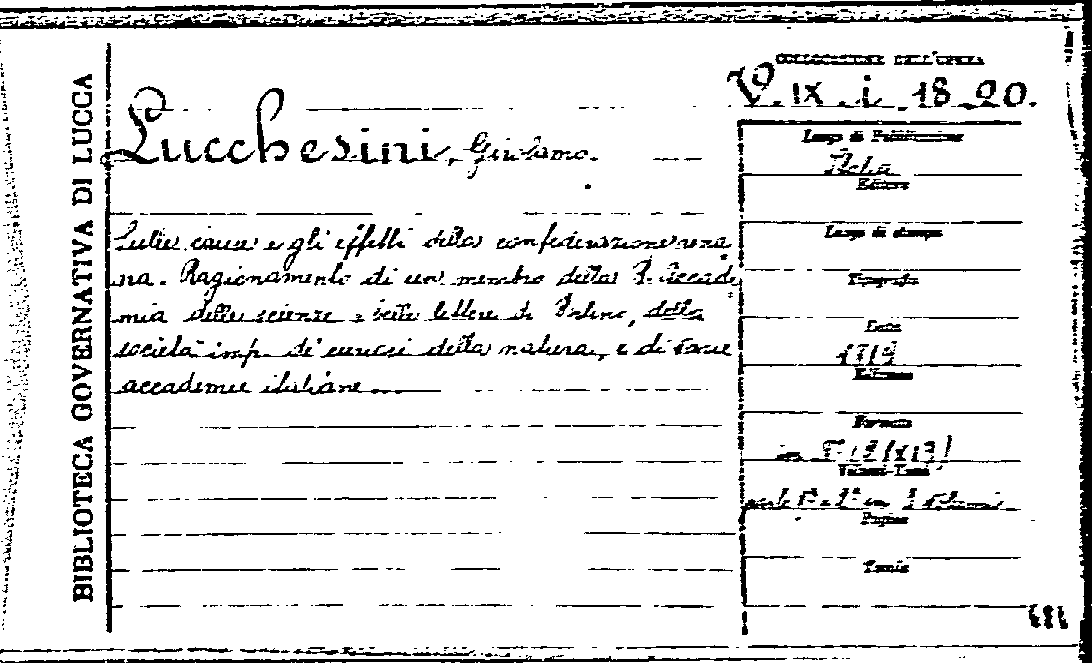 BIBLIOTECA GOVERNATIVA DI LUCCA
COLLOCAZIONE DELL'OPERA
V. IX. i. 18-20.
Lucchesini, Girolamo.
Sulle cause e gli effetti della confederazione rena
na. Ragionamento di un membro della R. Accade
mia delle scienze e belle lettere di Berlino, della
società imp. de' curiosi della natura, e di varie
accademie italiane
Luogo di Pubblicazione
Italia
Editore
Luogo di stampa
Tipografia
Data
1819
Edizione
Formato
in
Volumi-Tomi
parte 1ª e 2ª in 3 volumi
Pagine
Tavole